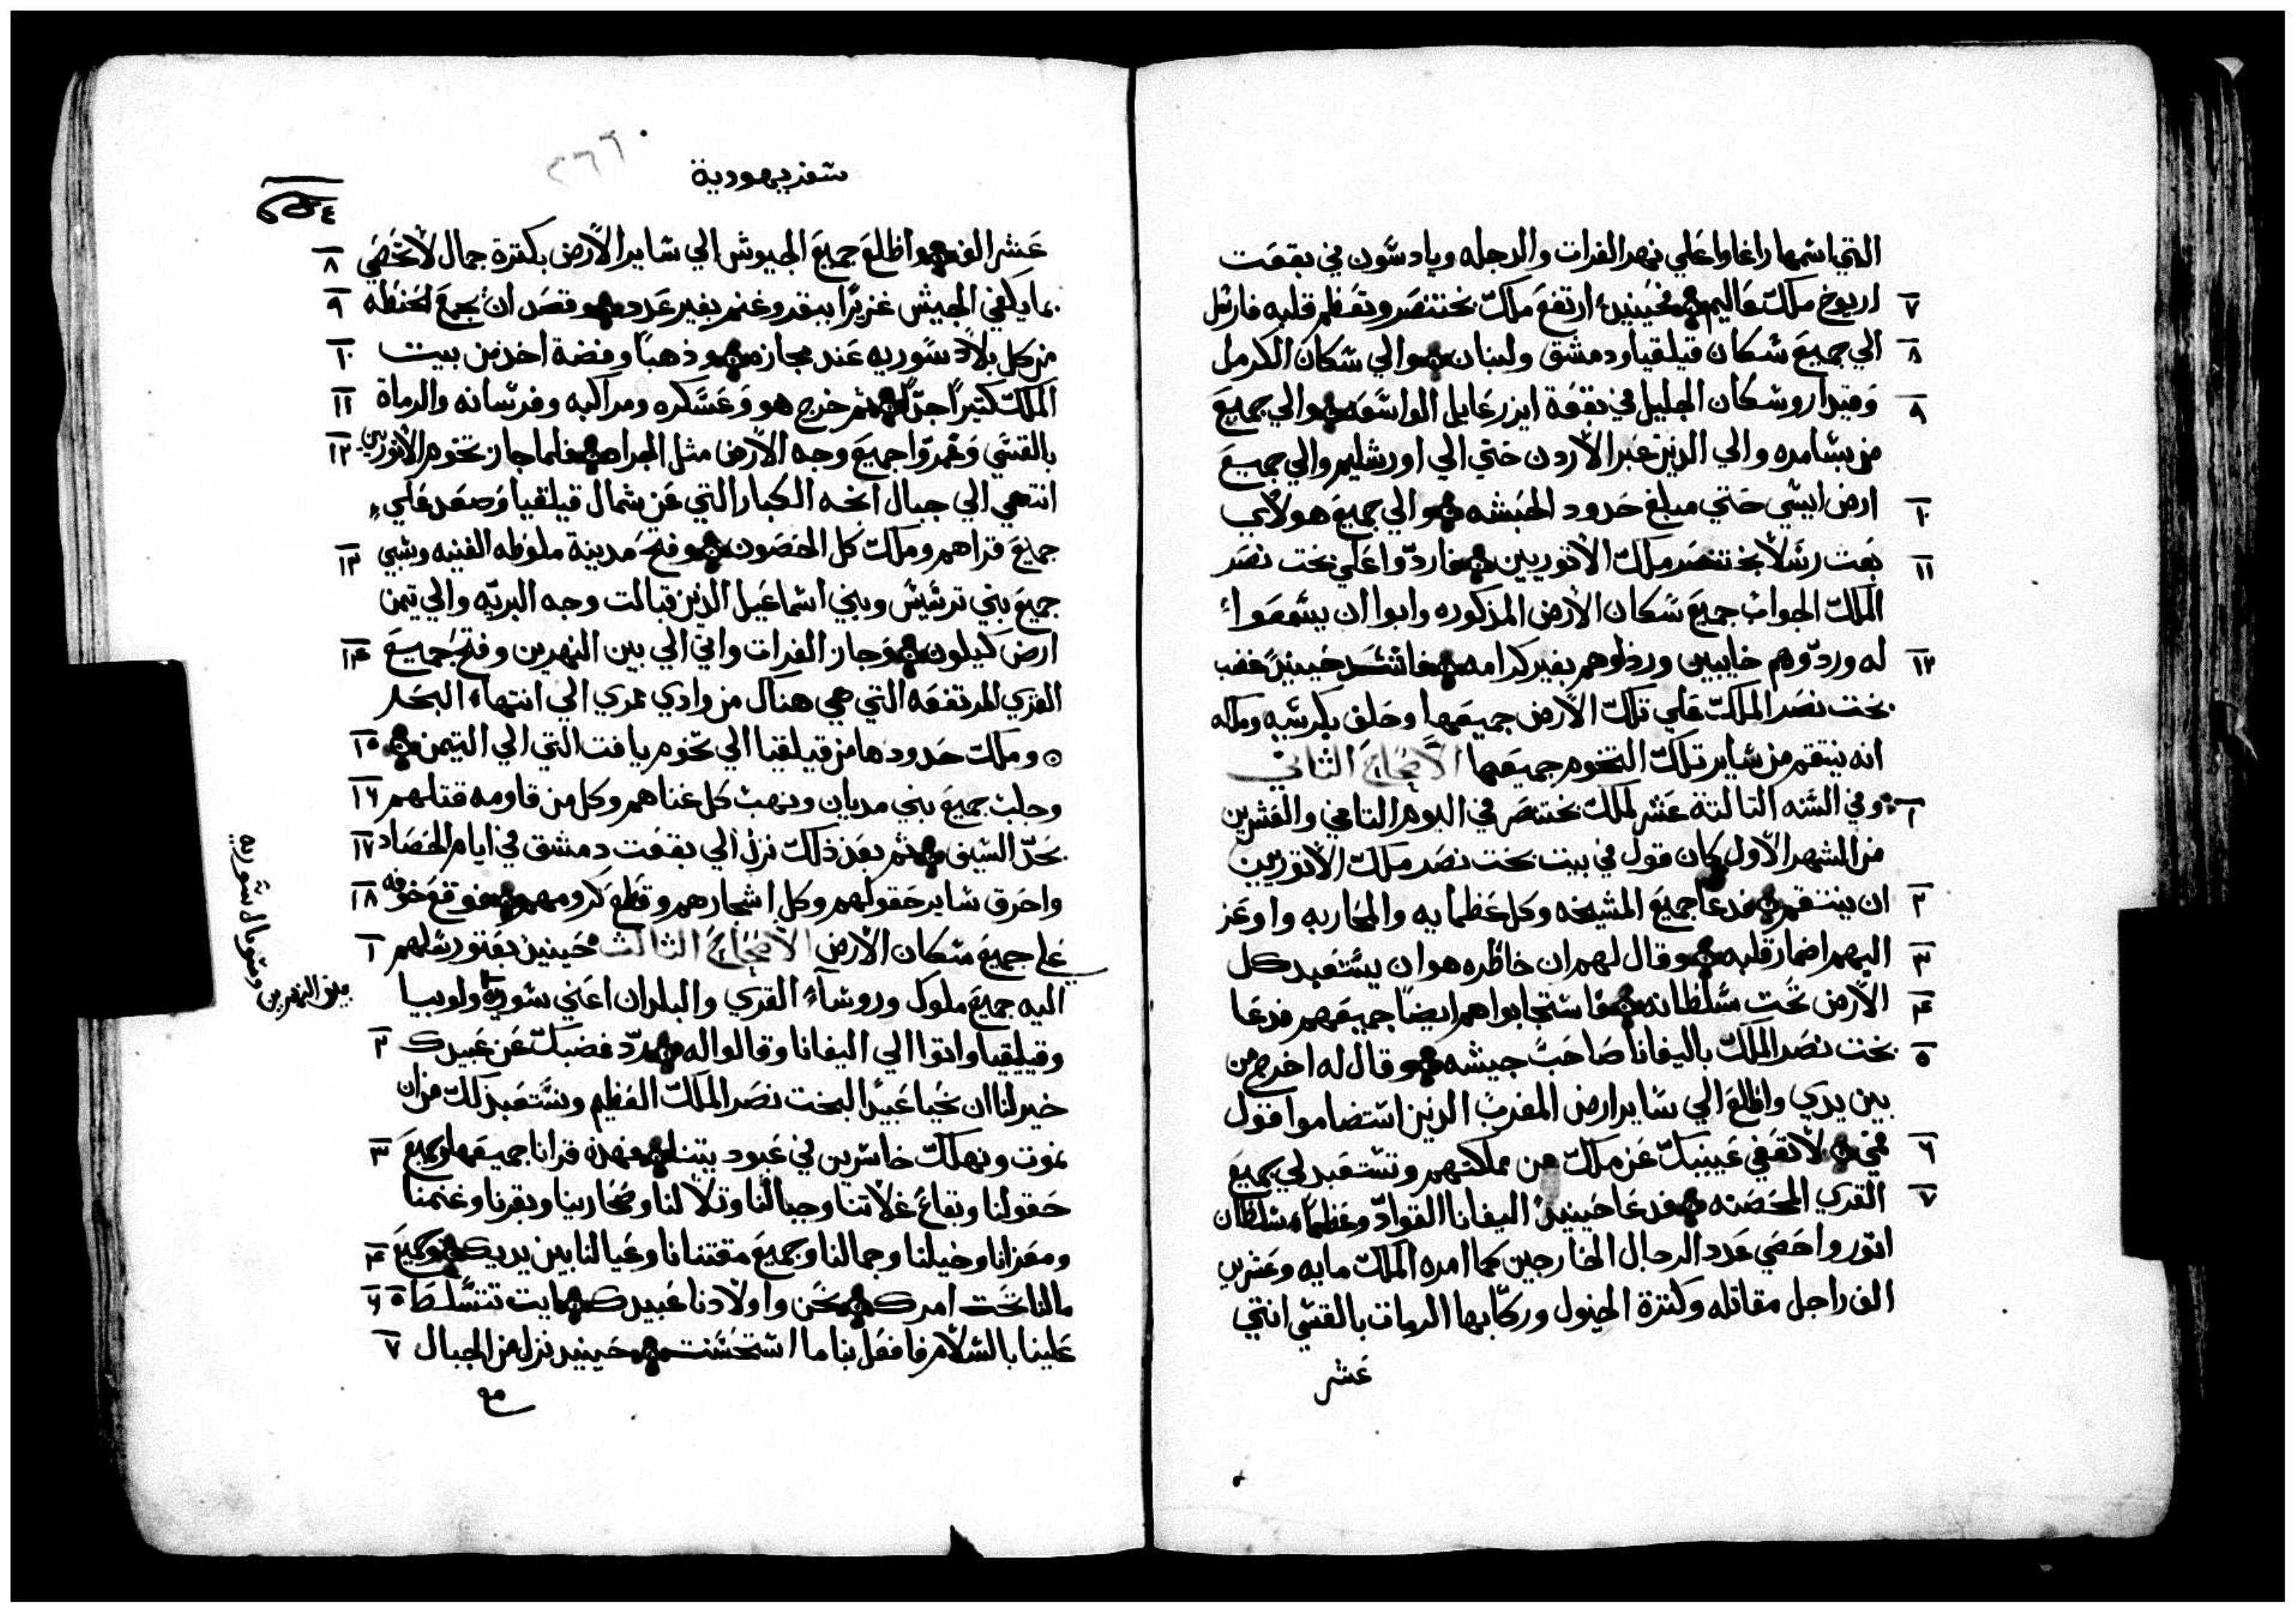 التي اسمها راغاوا علي نهر الفرات والدجله ويادسون في بقعت
٧ اريوخ ملك عاليم فحينيدٍ ارتفع ملك بختنصر وتعظم قلبه فارسل
٨ الي جميع سكان قيلقيا ودمشق ولبنان والي سكان الكرمل
٩ وقيدار وسكان الجليل في بقعة ايزرعايل الواسعه والي جميع
من بسامره والي الدين عبر الاردن حتي الي اورشليم والي جميع
١٠ ارض ايسي حتي مبلغ حدود الحبشه والي جميع هولاي
١١ بعت رسلاً بختنصر ملك الاتوريين فاردّوا علي بخت نصر
الملك الجواب جميع سكان الارض المدكوره وابوا ان يسمعوا
١٢ له وردّوهم خايبين وردلوهم بغير كرامه فاشتد حينيدٍ غضب
بخت نصر الملك علي تلك الارض جميعها وحلف بكرسيه وملكه
انه ينتقم من ساير تلك التخوم جميعها الاصحاح الثاني
١ وفي السنه التالتة عشر لملك بختنصر في اليوم التاني والعشرين
من الشهر الاول كان قول في بيت بخت نصر ملك الاتوريين
٢ ان ينتقم فدعا جميع المشيخه وكل عظمايه والمحاربه واوعز
٣ اليهم اضمار قلبه وقال لهم ان خاطره هو ان يستعبد كل
٤ الارض تحت سلطانه فاستجابوا هم ايضاً جميعهم فدعا
٥ بخت نصر الملك باليفانا صاحب جيشه وقال له اخرج من
بين يدي واطلع الي ساير ارض المغرب الدين استضاموا قول
٦ مني لا تعفي عينيك عن ملك من مملكتهم وتستعبد لي جميع
٧ القري المحصنه فدعا حينيدٍ اليفانا القوادّ وعظماء سلطان
اتور واحصي عدد الرجال الخارجين كما امره الملك مايه وعشرين
الف راجل مقاتله وكترة الخيول وركابها الرمات بالقسي اتني
عشر
سفر يهودية
٢٦٦
عشر الف واطلع جميع الجيوش الي ساير الارض بكترة جمال لا تحصي ٨
بما يكفي الجيش غزيراً ببقر وغنم بغير عدد وقصد ان يجمع الحنطه ٩
من كل بلاد سوريه عند مجازه ودهباً وفضة اخد من بيت ١٠
الملك كتيراً جداً تم خرج هو وعسكره ومراكبه وفرسانه والرماة ١١
بالقسي وغمروا جميع وجه الارض مثل الجراد فلما جاز تخوم الاتوريين ١٢
انتهي الي جبال انخه الكبار التي عن شمال قيلقيا وصعد علي
جميع قراهم وملك كل الحصون وفتح مدينة ملوطه الغنيه وسبي ١٣
جميع بني ترسيس وبني اسماعيل الدين قبالت وجه البريّه والي تيمن
ارض كيلون وجاز الفرات واتي الي بين النهرين وفتح جميع ١٤
القري المرتفعه التي هي هناك من وادي ممري الي انتهاء البحر
وملك حدودها من قيلقيا الي تخوم يافت التي الي التيمن ١٥
وجلب جميع بني مديان ونهب كل غناهم وكل من قاومه قتلهم ١٦
بحدّ السيف تم بعد دلك نزل الي بقعت دمشق في ايام الحصاد ١٧
واحرق ساير حقولهم وكل اشجارهم وقطع كرومهم فوقع خوفه ١٨
علي جميع سكان الارض الاصحاح الثالث حينيدٍ بعتو رسلهم ١
اليه جميع ملوك وروساء القري والبلدان اعني سوريه ولوبيا
وقيليقيا واتوا الي اليفانا وقالوا له ردّ غضبك عن عبيدك ٢
خير لنا ان نحيا عبيداً لبخت نصر الملك العظيم ونستعبد لك من ان
نموت ونهلك خاسرين في عبوديتنا فهده قرانا جميعها وجميع ٣
حقولنا وبقاع غلاتنا وجبالنا وتلالنا وصحارينا وبقرنا وغنمنا
ومعزانا وخيلنا وجمالنا وجميع مقتنانا وعيالنا بين يديك وجميع ٤
مالنا تحت امرك نحن واولادنا عبيدك ايت تتسلط ٥ ٦
علينا بالسلام فافعل بنا ما استحسنت حينيدٍ نزل من الجبال ٧
بين النهرين وسوريال سوريه